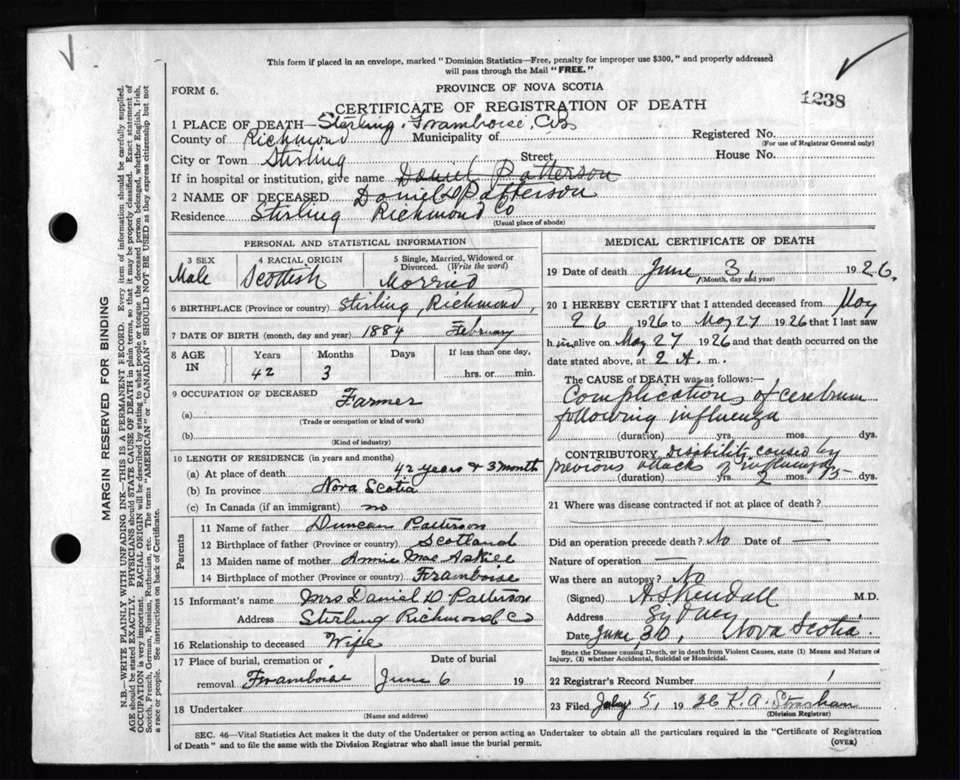 This form if placed in an envelope, marked "Dominion Statistics—Free, penalty for improper use $300," and properly addressed
will pass through the Mail "FREE."
FORM 6.
PROVINCE OF NOVA SCOTIA
CERTIFICATE OF REGISTRATION OF DEATH
1238
1 PLACE OF DEATH—Sterling, Framboise, C.B.
County of Richmond Municipality of
Registered No.
(For use of Registrar General only)
City or Town Stirling Street, House No.
If in hospital or institution, give name Daniel Patterson
2 NAME OF DECEASED Daniel D Patterson
Residence Stirling Richmond Co
(Usual place of abode)
PERSONAL AND STATISTICAL INFORMATION
3 SEX
Male
4 RACIAL ORIGIN
Scottish
5 Single, Married, Widowed or
Divorced. (Write the word)
Married
6 BIRTHPLACE (Province or country) Stirling, Richmond,
7 DATE OF BIRTH (month, day and year) 1884 February
8 AGE
IN
Years
42
Months
3
Days
If less than one day,
hrs. or min.
9 OCCUPATION OF DECEASED Farmer
(a)
(Trade or occupation or kind of work)
(b)
(Kind of industry)
10 LENGTH OF RESIDENCE (in years and months)
(a) At place of death 42 years & 3 month
(b) In province Nova Scotia
(c) In Canada (if an immigrant) no
Parents
11 Name of father Duncan Patterson
12 Birthplace of father (Province or country) Scotland
13 Maiden name of mother Annie Mac Askill
14 Birthplace of mother (Province or country) Framboise
15 Informant's name Mrs Daniel D Patterson
Address Sterling Richmond Co
16 Relationship to deceased Wife
17 Place of burial, cremation or
removal Framboise
Date of burial
June 6 19
18 Undertaker
(Name and address)
MEDICAL CERTIFICATE OF DEATH
19 Date of death June 3, 1926,
(Month, day and year)
20 I HEREBY CERTIFY that I attended deceased from May
26 1926 to May 27 1926 that I last saw
h im alive on May 27 1926 and that death occurred on
date stated above, at 2 A. m.
The CAUSE OF DEATH was as follows:—
Complications of cerebrum
following influenza
(duration) yrs. mos. dys.
CONTRIBUTORY Disability caused by
previous attacks of influenza
(duration) yrs. 2 mos. 15 dys.
21 Where was disease contracted if not at place of death?
Did an operation precede death? No Date of —
Nature of operation —
Was there an autopsy? No
(Signed) A S Kendall M.D.
Address Sydney
Date June 30, Nova Scotia.
State the Disease causing Death, or in death from Violent Causes, state (1) Means and Nature of
Injury, (2) whether Accidental, Suicidal or Homicidal.
22 Registrar's Record Number 1
23 Filed July 5, 1926 K. A. Strachan
(Division Registrar)
SEC. 46—Vital Statistics Act makes it the duty of the Undertaker or person acting as Undertaker to obtain all the particulars required in the "Certificate of Registration
of Death" and to file the same with the Division Registrar who shall issue the burial permit.
(OVER)
MARGIN RESERVED FOR BINDING
N.B.—WRITE PLAINLY WITH UNFADING INK—THIS IS A PERMANENT RECORD. Every item of information should be carefully supplied.
AGE should be stated EXACTLY. PHYSICIANS should STATE CAUSE OF DEATH in plain terms, so that it may be properly classified. Exact statement of
OCCUPATION is very important. RACIAL ORIGIN will be described by stating to what people or tongue the deceased person belonged, whether English, Irish,
Scotch, French, German, Russian, Ruthenian, etc. The terms "AMERICAN" or "CANADIAN" SHOULD NOT BE USED as they express citizenship but not
a race or people. See instructions on back of Certificate.